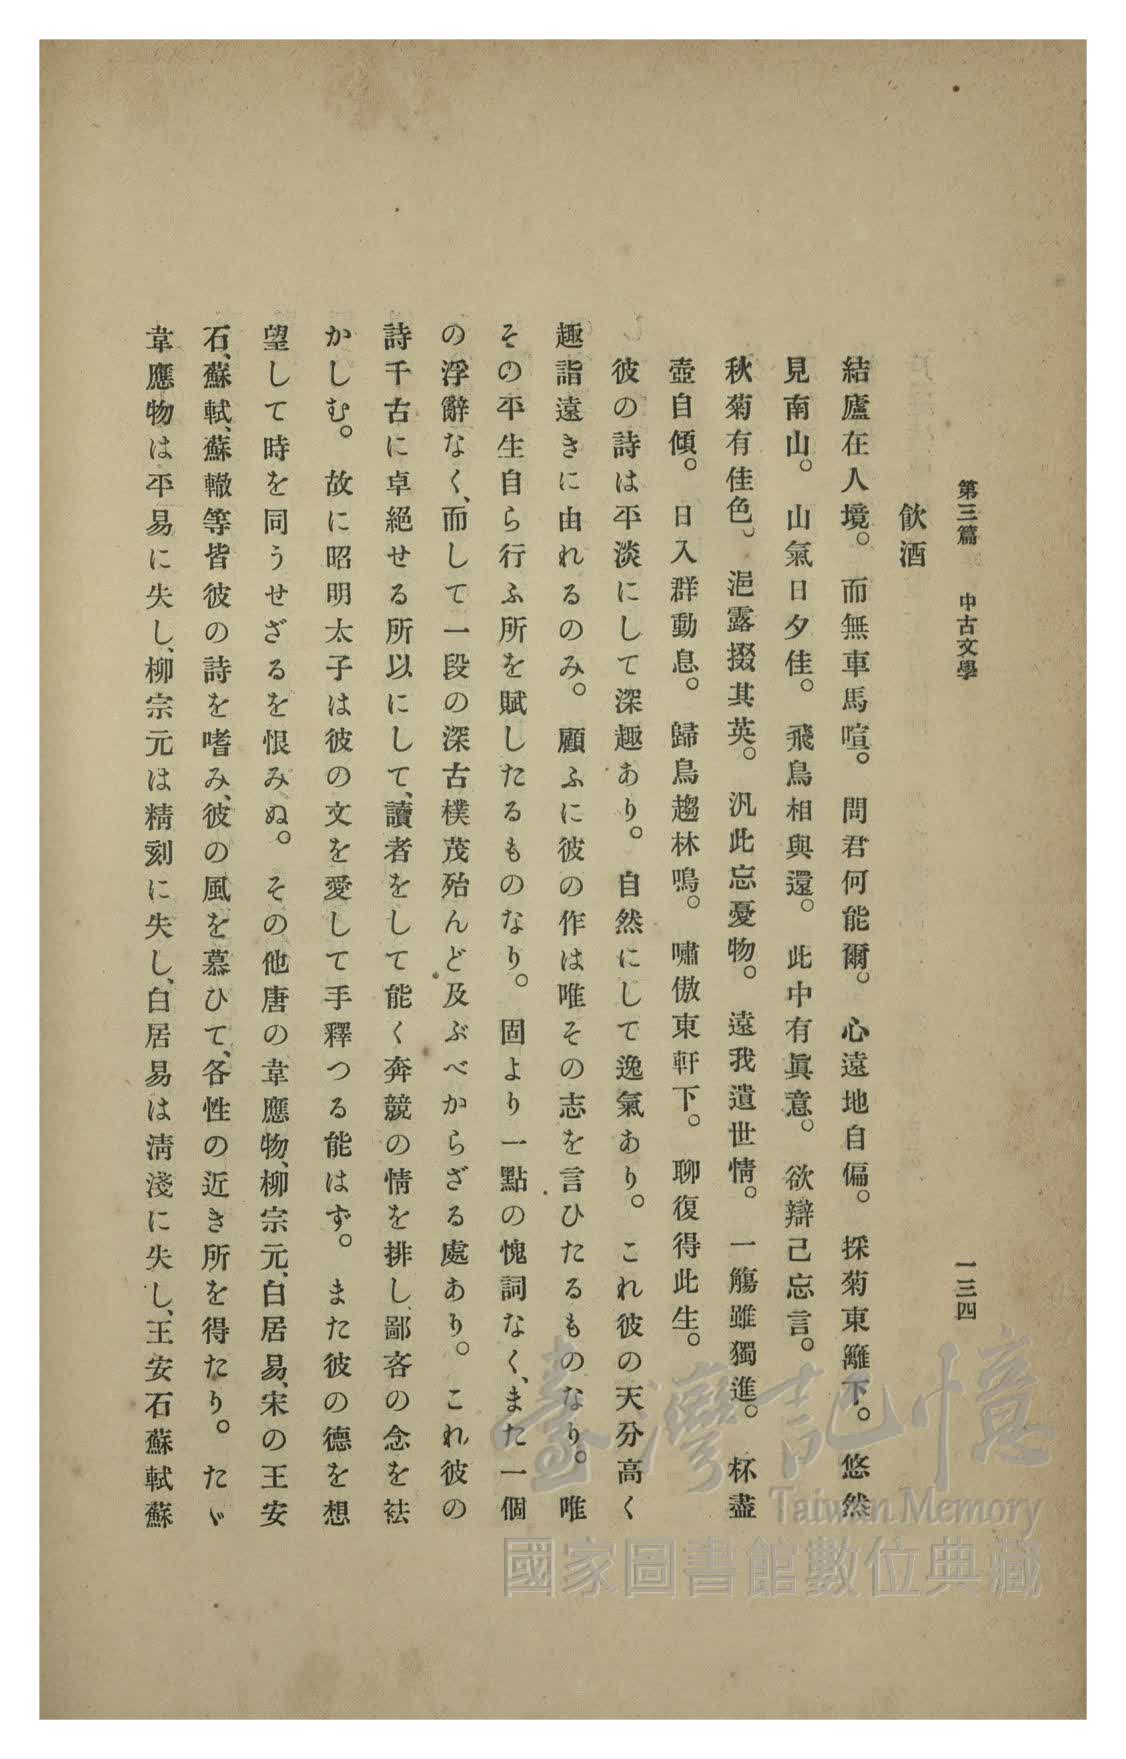 第三篇　中古文學　一三四
飮酒
結廬在人境。而無車馬喧。問君何能爾。心遠地自偏。採菊東籬下。悠然
見南山。山氣日夕佳。飛鳥相與還。此中有眞意。欲辯己忘言。
秋菊有佳色。浥露掇其英。汎此忘憂物。遠我遺世情。一觴雖獨進。杯盡
壺自傾。日入群動息。歸鳥趨林鳴。嘯傲東軒下。聊復得此生。
彼の詩は平淡にして深趣あり。自然にして逸氣あり。これ彼の天分高く
趣詣遠きに由れるのみ。顧ふに彼の作は唯その志を言ひたるものなり。唯
その平生自ら行ふ所を賦したるものなり。固より一點の愧詞なく、また一個
の浮辭なく、而して一段の深古樸茂殆んど及ぶべからざる處あり。これ彼の
詩千古に卓絕せる所以にして、讀者をして能く奔競の情を排し、鄙吝の念を袪
かしむ。故に昭明太子は彼の文を愛して手釋つる能はず。また彼の德を想
望して時を同うせざるを恨みぬ。その他唐の韋應物、柳宗元、白居易、宋の王安
石、蘇軾、蘇轍等皆彼の詩を嗜み、彼の風を慕ひて、各性の近き所を得たり。たゞ
韋應物は平易に失し、柳宗元は精刻に失し、白居易は淸淺に失し、王安石蘇軾蘇
臺灣記憶
Taiwan Memory
國家圖書館數位典藏